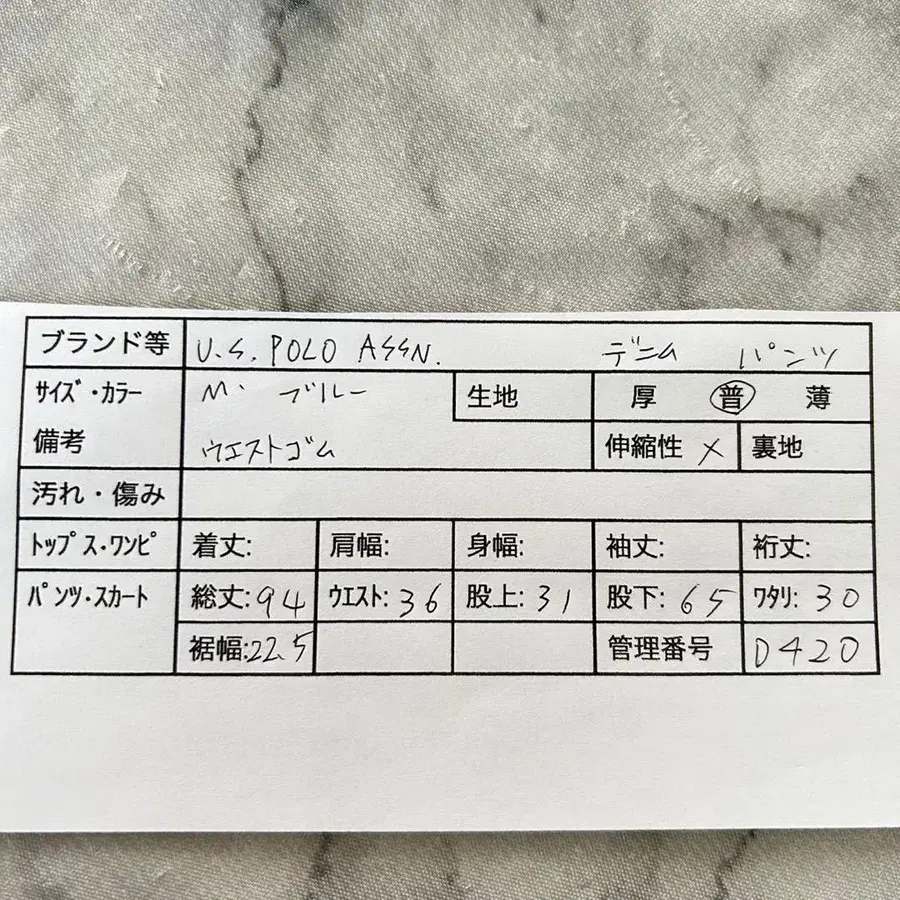 ブランド等 U.S. POLO ASSN. デニム パンツ
サイズ・カラー M. ブルー 生地 厚 普 薄
備考 ウエストゴム 伸縮性 × 裏地
汚れ・傷み
トップス・ワンピ 着丈: 肩幅: 身幅: 袖丈: 裄丈:
パンツ・スカート 総丈:94 ウエスト:36 股上:31 股下:65 ワタリ:30
裾幅:22.5 管理番号 D420